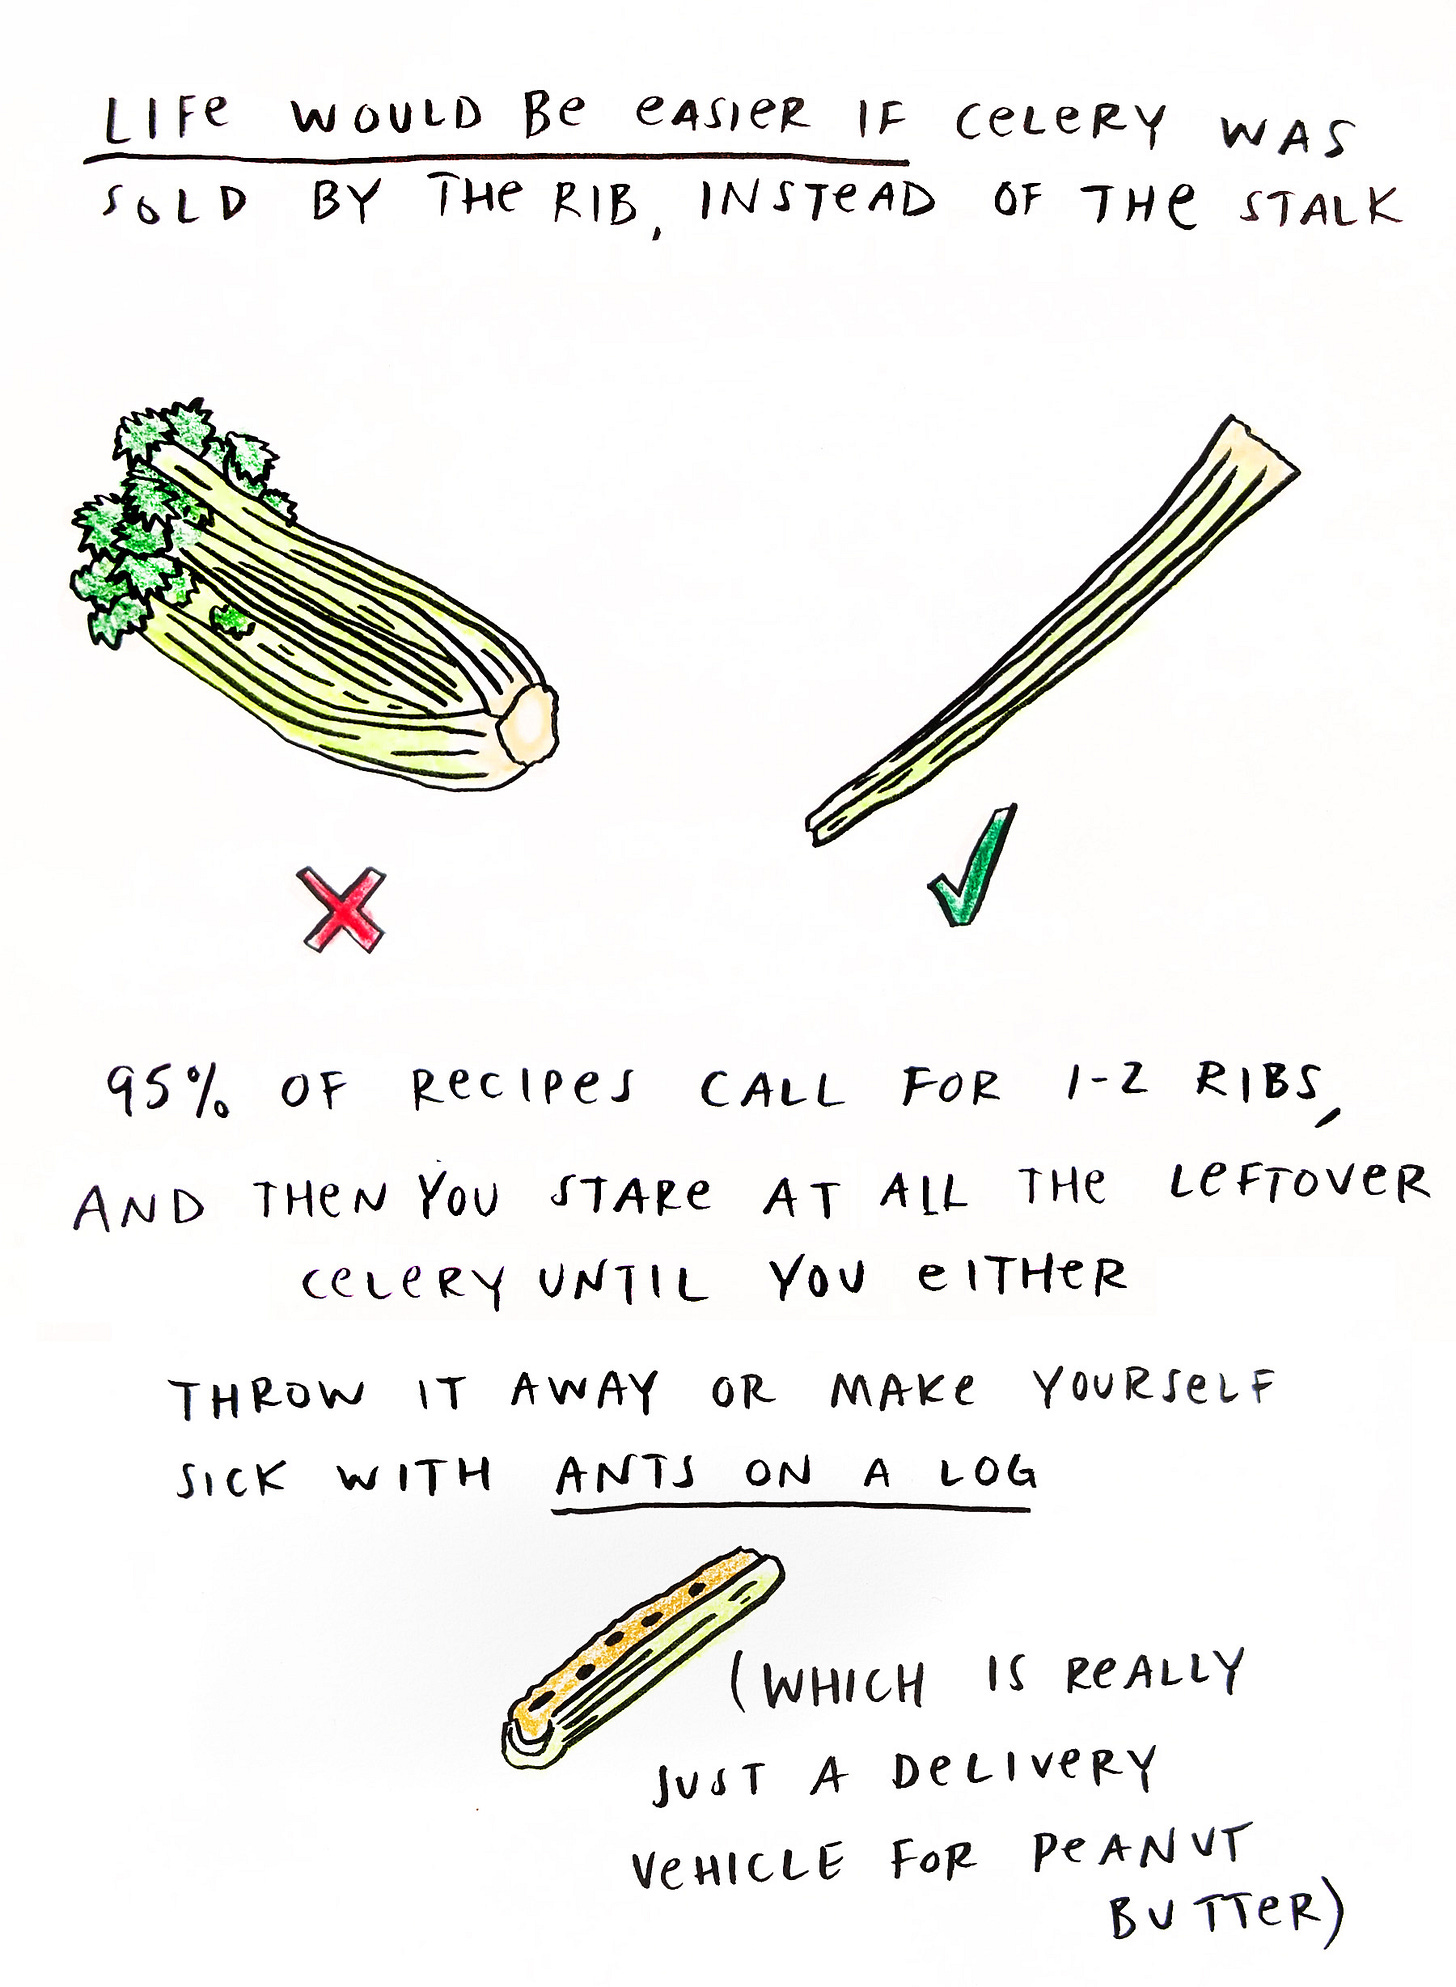 LIFE WOULD BE EASIER IF CELERY WAS
SOLD BY THE RIB, INSTEAD OF THE STALK
95% OF RECIPES CALL FOR 1-2 RIBS,
AND THEN YOU STARE AT ALL THE LEFTOVER
CELERY UNTIL YOU EITHER
THROW IT AWAY OR MAKE YOURSELF
SICK WITH ANTS ON A LOG
(WHICH IS REALLY
JUST A DELIVERY
VEHICLE FOR PEANUT
BUTTER)